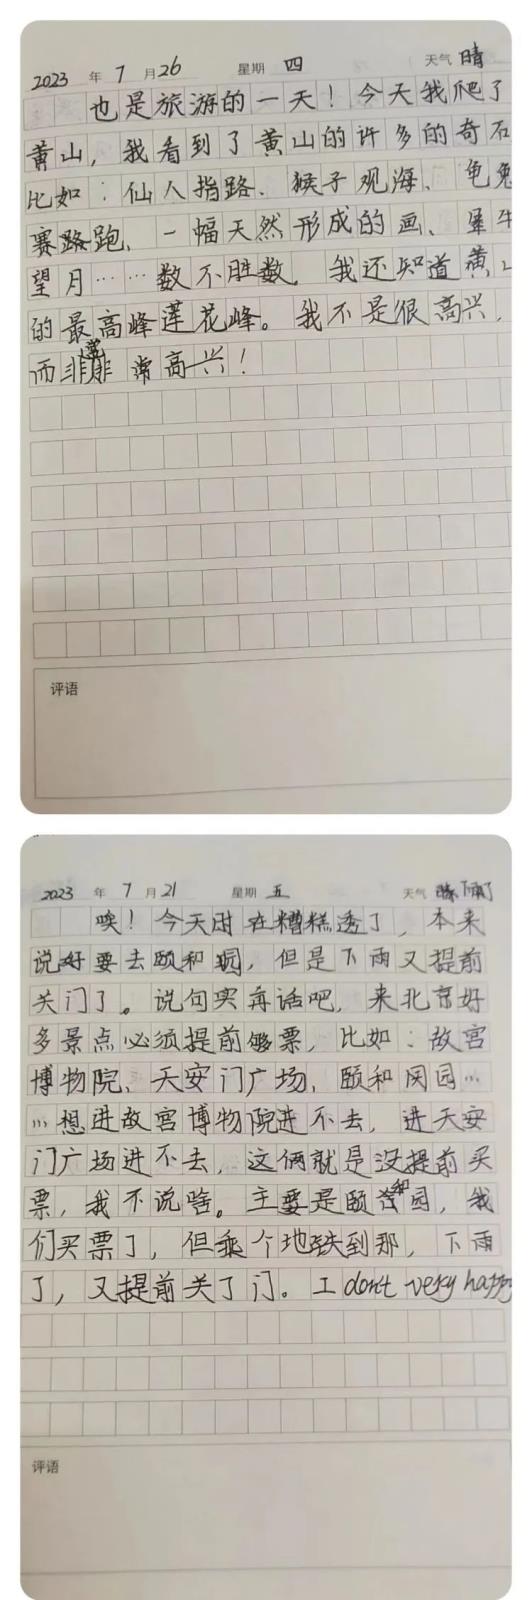 2023 年 7 月 26 星期 四 天气 晴
也是旅游的一天！今天我爬了
黄山，我看到了黄山的许多的奇石
比如：仙人指路、猴子观海、龟兔
赛跑、一幅天然形成的画、犀牛
望月……数不胜数。我还知道黄山
的最高峰莲花峰。我不是很高兴，
而非常高兴！
评语
2023 年 7 月 21 星期 五 天气 下雨了
唉！今天糟糕透了，本来
说好要去颐和园，但是下雨又提前
关门了。说句实再话吧，来北京好
多景点必须提前够票，比如：故宫
博物院、天安门广场、颐和园…
…想进故宫博物院进不去，进天安
门广场进不去，这俩就是没提前买
票，我不说啥。主要是颐和园，我
们买票了，但乘个地铁到那，下雨
了，又提前关了门。I dont very happy
评语